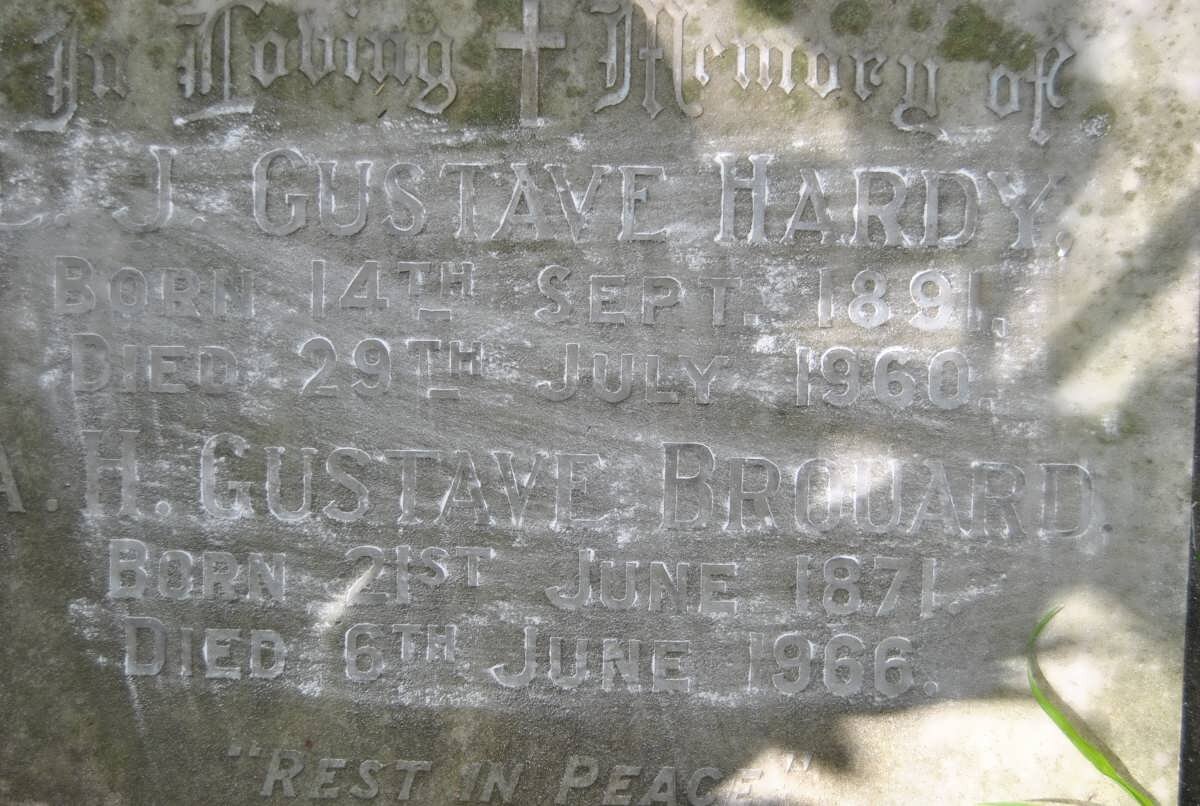 In Loving Memory of
J. Gustave Hardy,
Born 14th Sept. 1891,
Died 29th July 1960.
A. H. Gustave Brouard.
Born 21st June 1871.
Died 6th June 1966.
"Rest in Peace"